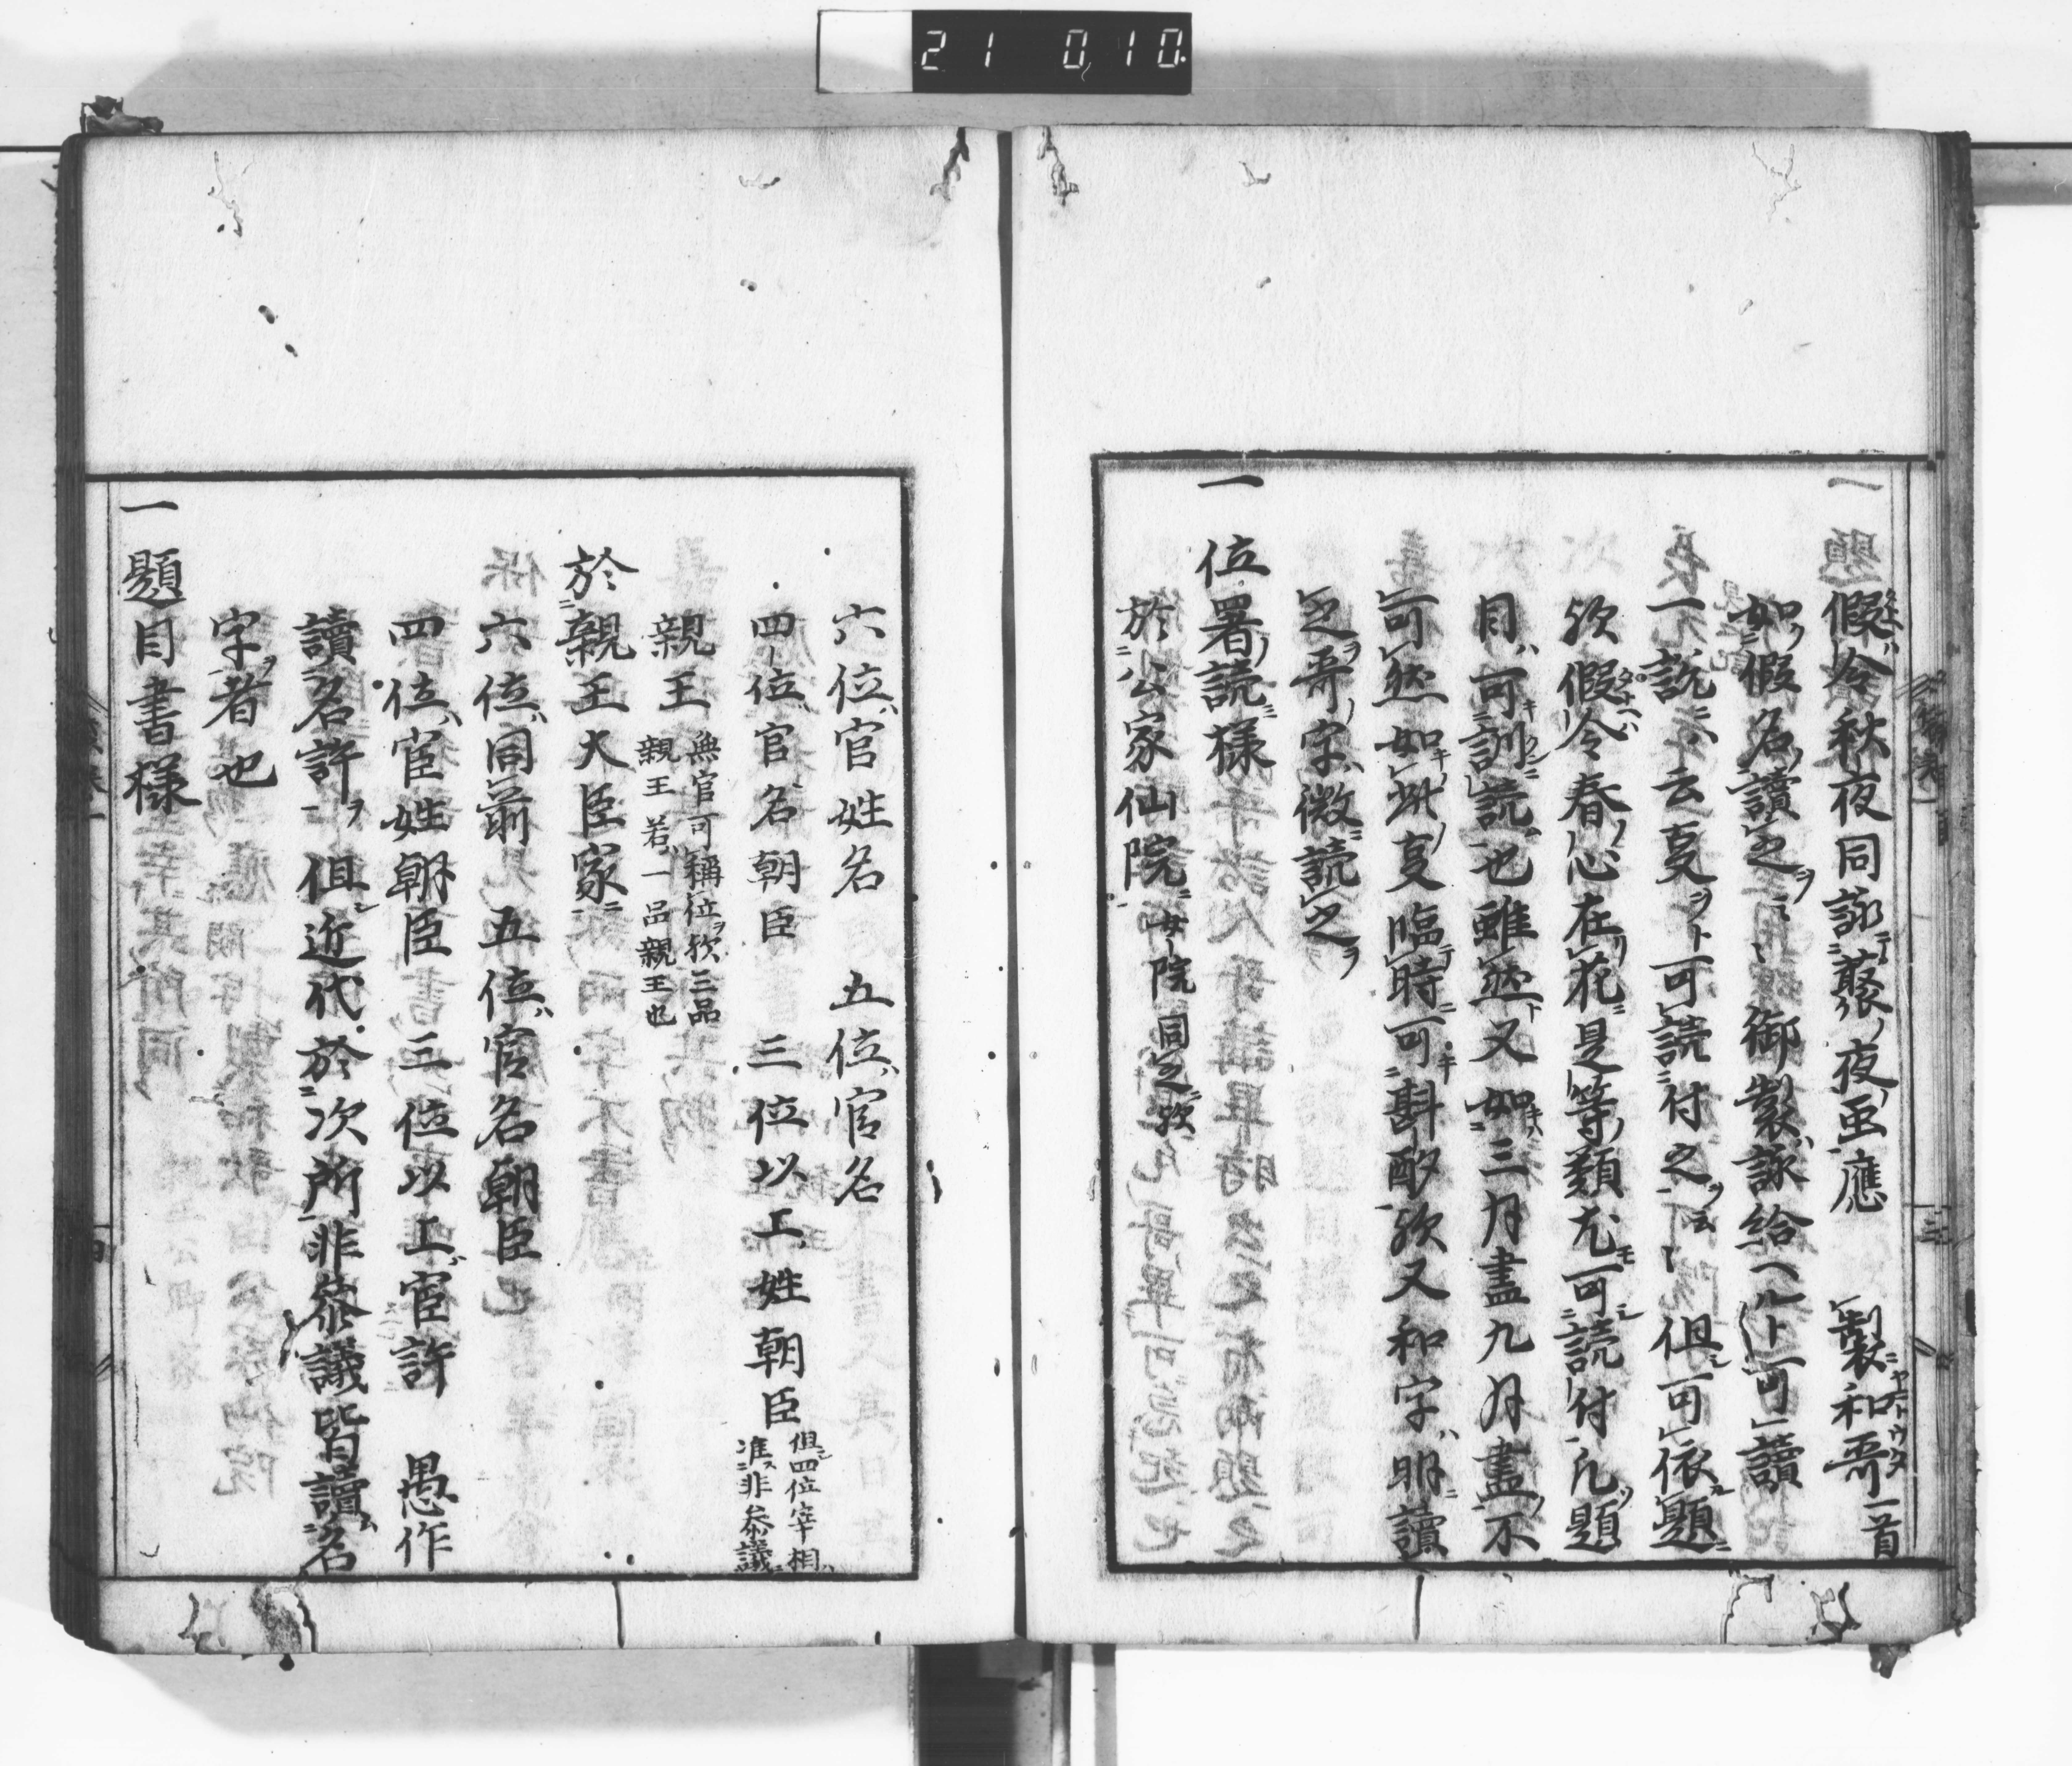 21 010
假令秋夜同詠蘂夜臣應 製和哥一首
如假名讀之 御製詠給ヘルト可讀
一説云 可読付之 但可依題
欤假令春心在花是等類尤可読付凡題
目可訓読也雖然又如三月盡九月盡不
可然如此支臨時可斟酌欤又和字明讀
之哥字微読之
一 位署読様
於公家仙院 女院同之欤
六位官姓名 五位官名
四位官名朝臣 三位以上姓朝臣 但四位宰相准非参議
親王 無官可稱位欤三品親王若一品親王也
於親王大臣家
六位同前 五位官名朝臣
四位官姓朝臣 三位以上官許 愚作
讀名許 但近代於次所非参議皆讀名
字者也
一 題目書様